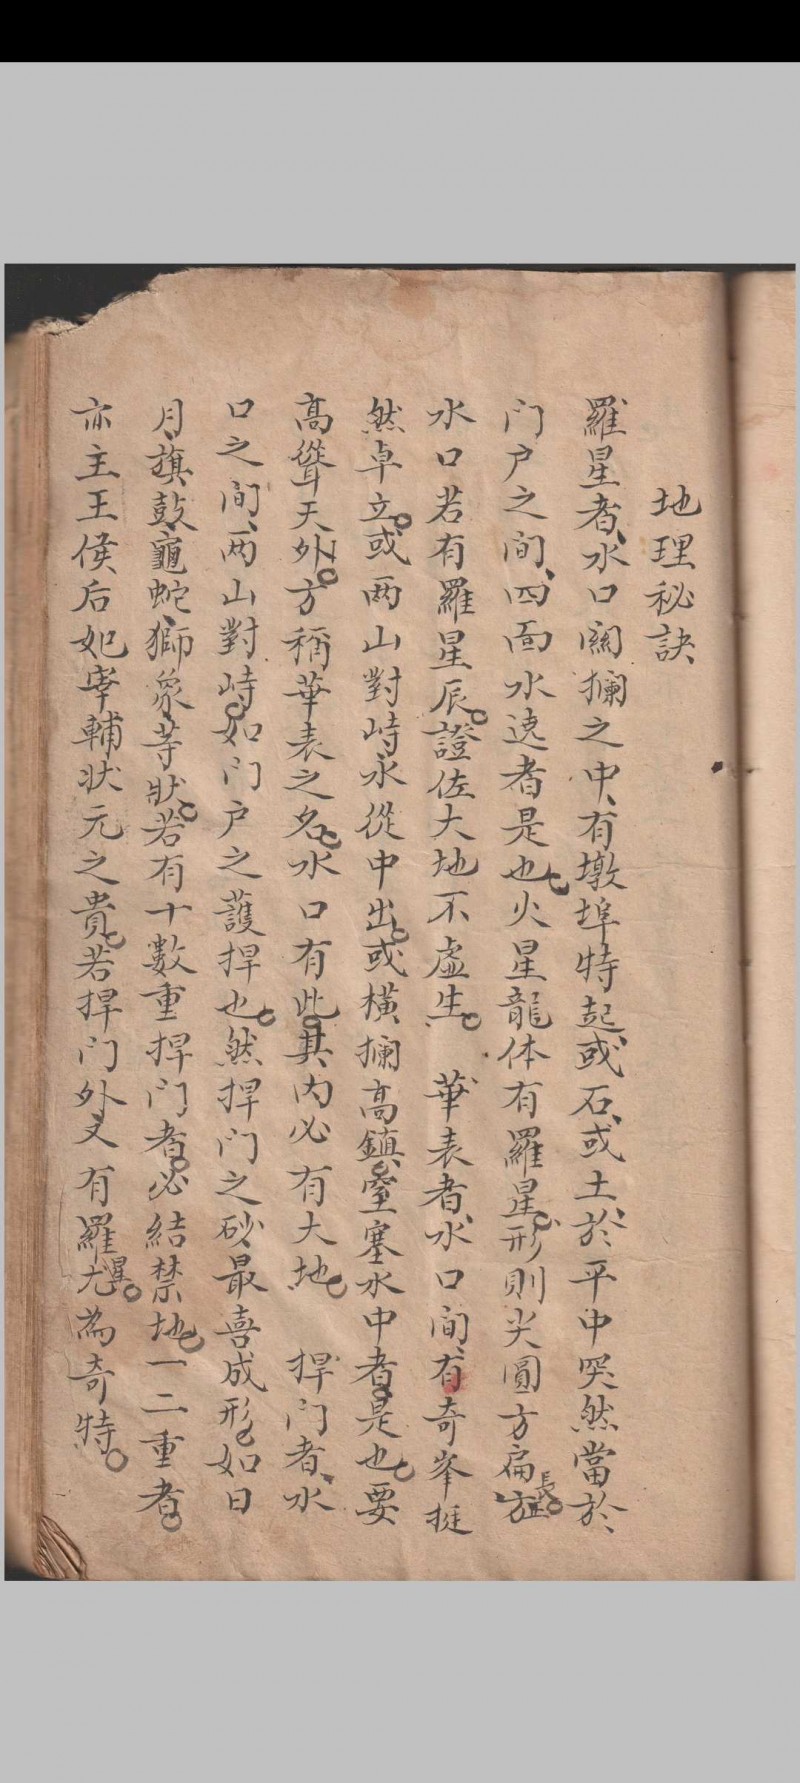 地理秘訣
羅星者、水口關攔之中、有墩埠特起、或石、或土、於平中突然當於
门户之间、四面水遶者是也。火星龍体有羅星。形則尖圓方扁長。
水口若有羅星辰。證佐大地不虛生。華表者、水口间、有奇峯挺
然卓立。或两山對峙、水從中出。或橫攔高鎮、窒塞水中者。是也。要
高聳天外。方稱華表之名。水口有此。其内必有大地。捍门者、水
口之间、两山對峙。如门户之護捍也。然捍门之砂、最喜成形。如日
月、旗、鼓、龜、蛇、獅、象、等狀。若有十數重捍门者。必結禁地。一二重者。
亦主王侯后妃宰輔状元之貴。若捍门外又有羅星。尤為奇特。